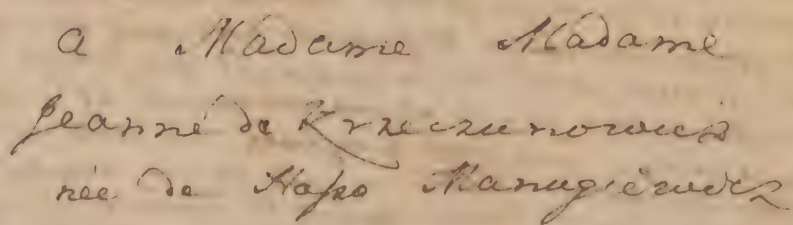 a Madame Madame
Jeanne de Krzeczunowicz
née de Hapso Manugiéwicz